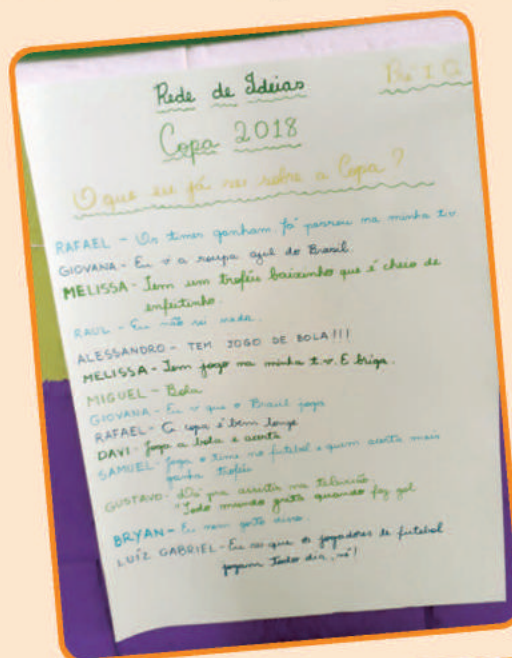 Rede de Ideias
Pré I C
Copa 2018
O que eu já sei sobre a Copa?
RAFAEL - Os times ganham, já passou na minha t.v.
GIOVANA - Eu vi a roupa azul do Brasil.
MELISSA - Tem um troféu baixinho que é cheio de
enfeitinho.
RAUL - Eu não sei nada.
ALESSANDRO - TEM JOGO DE BOLA!!!
MELISSA - Tem jogo na minha t.v. E briga.
MIGUEL - Bola
GIOVANA - Eu vi que o Brasil joga
RAFAEL - A copa é bem longe
DAVI - Joga a bola e acerta
SAMUEL - Joga o time no futebol e quem acerta mais
ganha troféu
GUSTAVO - Dá pra assistir na televisão.
"Todo mundo grita quando faz gol
BRYAN - Eu nem gosto disso.
LUÍZ GABRIEL - Eu sei que os jogadores de futebol
jogam todo dia, né!